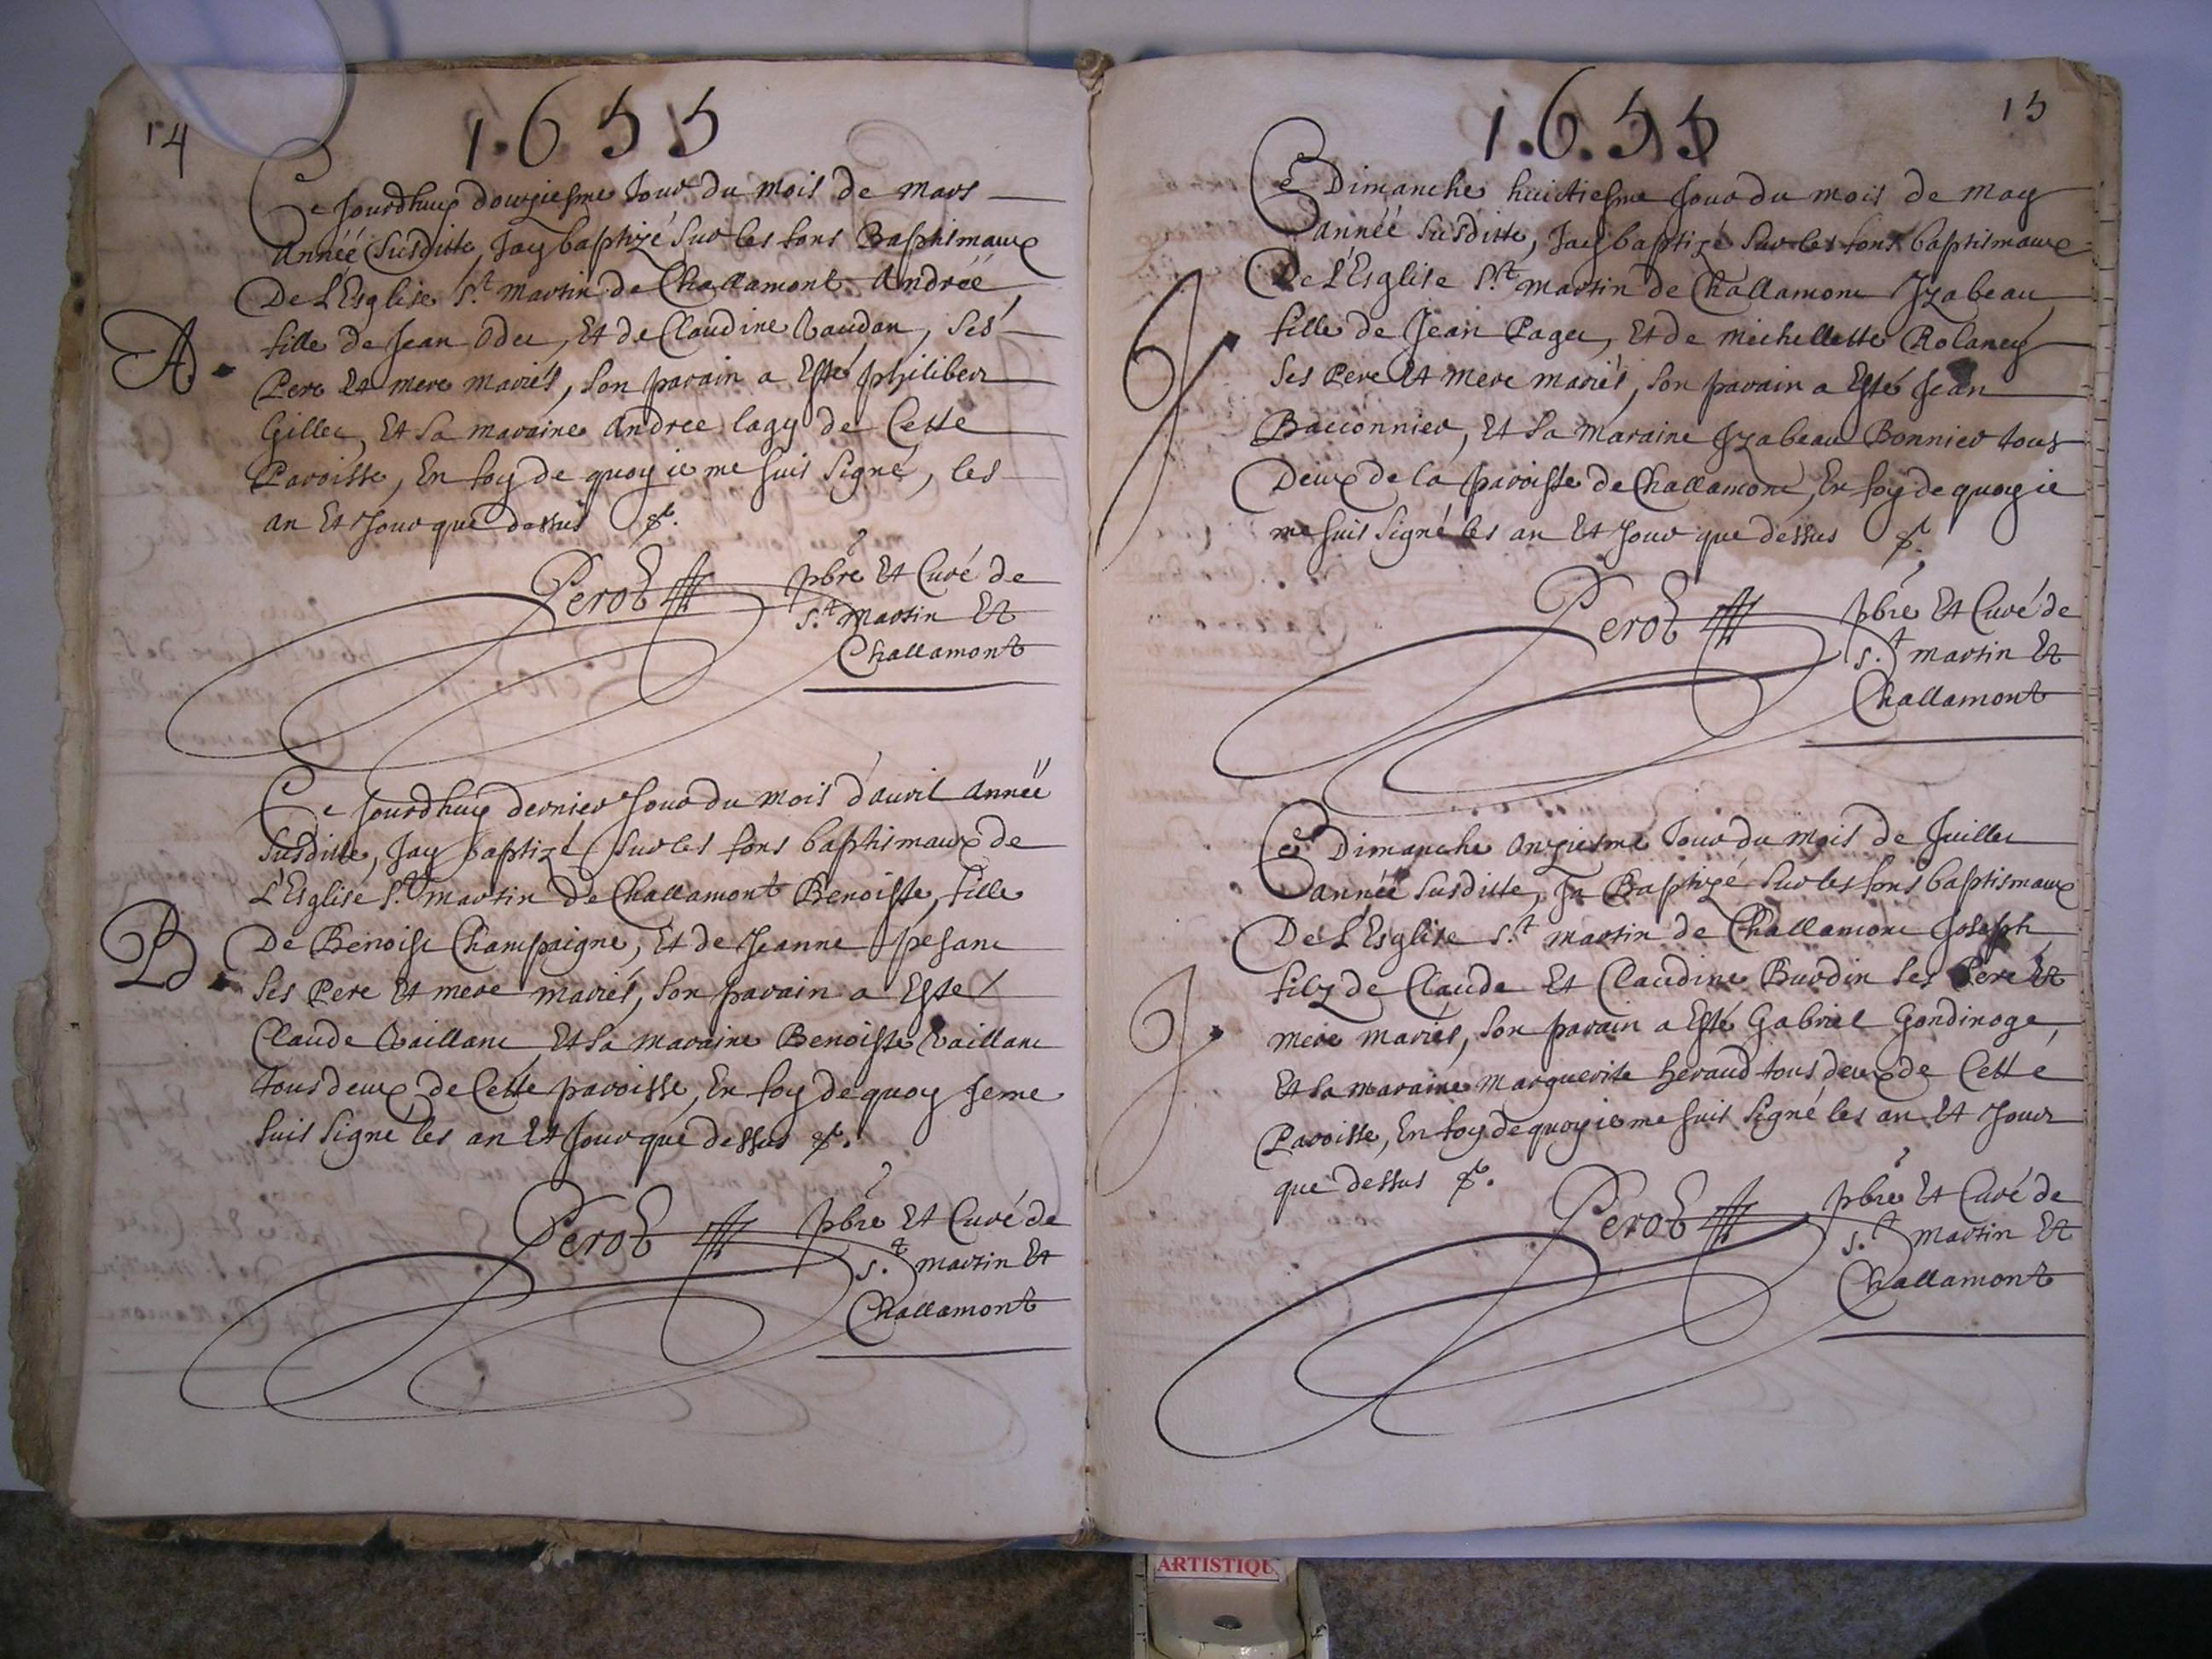 14
1.6 5 5
Ce Jourdhuy douziesme Jour du mois de mars
Année Susditte, Jay baptizé sur les fons Baptismaux
De L'Esglise S.t martin de Challamont Andréé
fille de Jean Odet, Et de Claudine Vaudan, Ses
A.
Pere Et mere mariés, Son parain a Esté philibert
Gillet, Et Sa maraine Andree lagy de Cette
Paroisse, En foy de quoy ie me suis Signé, les
an Et Jour que dessus &.
Perot pbre Et Curé de
S.t martin Et
Challamont
Ce Jourdhuy dernier Jour du mois d'auril Année
Susditte, Jay baptizé Sur les fons baptismaux de
L'Esglise S.t martin de Challamont Benoiste, fille
B.
De Benoist Champaigne, Et de Jeanne pesant
Ses Pere Et mere mariés, Son parain a Esté
Claude Vaillant, Et Sa maraine Benoiste Vaillant
tous deux de Cette paroisse, En foy de quoy Je me
Suis Signé les an Et Jour que dessus &.
Perot pbre Et Curé de
S.t martin Et
Challamont
15
1.6.5 5
Ce Dimanche huictiesme Jour du mois de may
année Susditte, Jay baptizé Sur les fons baptismaux
De L'Esglise S.t martin de Challamont Jzabeau
J.
fille de Jean Paget, Et de michellette Rolancy
Ses Pere Et mere mariés, Son parain a Esté Jean
Bacconnier, Et Sa maraine Jzabeau Bonnier tous
Deux de la paroisse de Challamont, En foy de quoy ie
me suis Signé les an Et Jour que dessus &.
Perot pbre Et Curé de
S.t martin Et
Challamont
Ce Dimanche Onziesme Jour du mois de Juillet
année Susditte, Ja Baptizé Sur les fons baptismaux
De L'Esglise S.t martin de Challamont Joseph
filz de Claude Et Claudine Burdin Ses Pere Et
J.
mere mariés, Son parain a Esté Gabriel Gondinoge,
Et Sa maraine marguerite heraud tous deux de Cette
Paroisse, En foy de quoy ie me suis Signé les an Et Jour
que dessus &.
Perot pbre Et Curé de
S.t martin Et
Challamont
ARTISTIQU